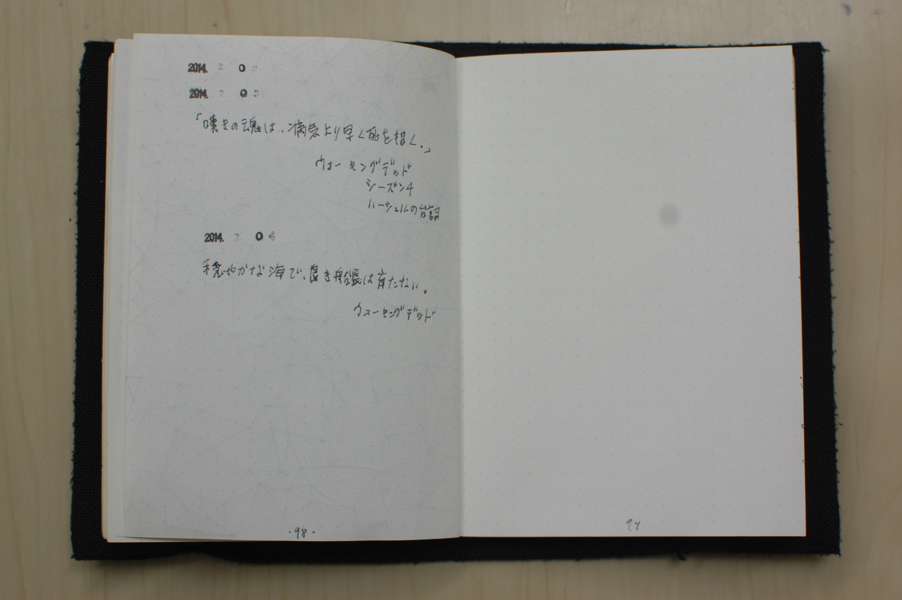 2014. 2 0
2014. 2 0
「嘆きの魂は、病気より早く酌を招く。」
ウォーキングデッド
シーズン4
ハーシェルの台詞
2014. 2 0
穏やかな海で、良き船長は育たない。
ウォーキングデッド
-98-